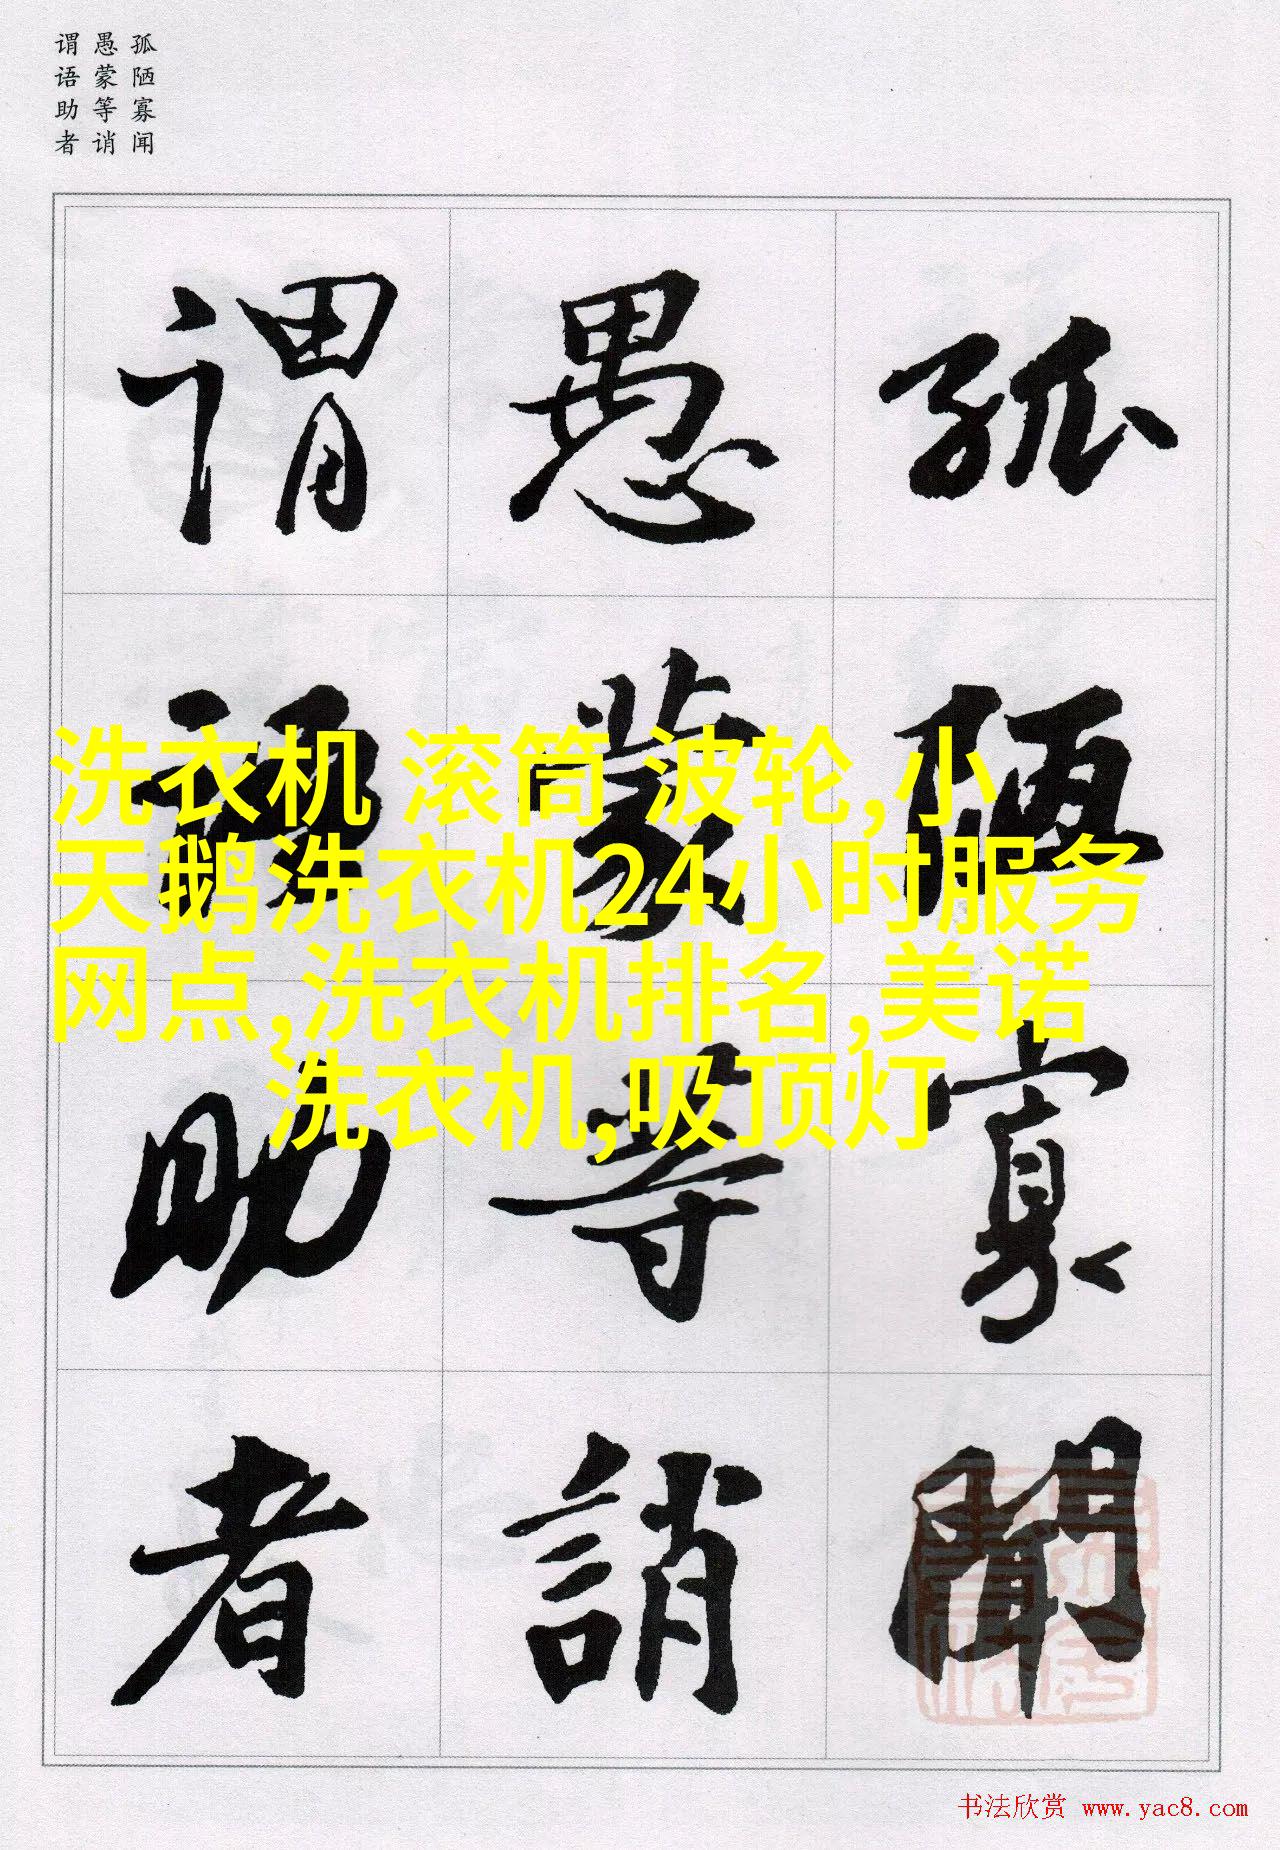 孤陋寡闻
愚蒙等诮
谓语助者
孤陋寡聞
愚蒙等誚
謂語助者
洗衣机 滚筒 波轮,小
天鹅洗衣机24小时服务
网点,洗衣机排名,美诺
洗衣机,吸顶灯
书法欣赏 www.yac8.com